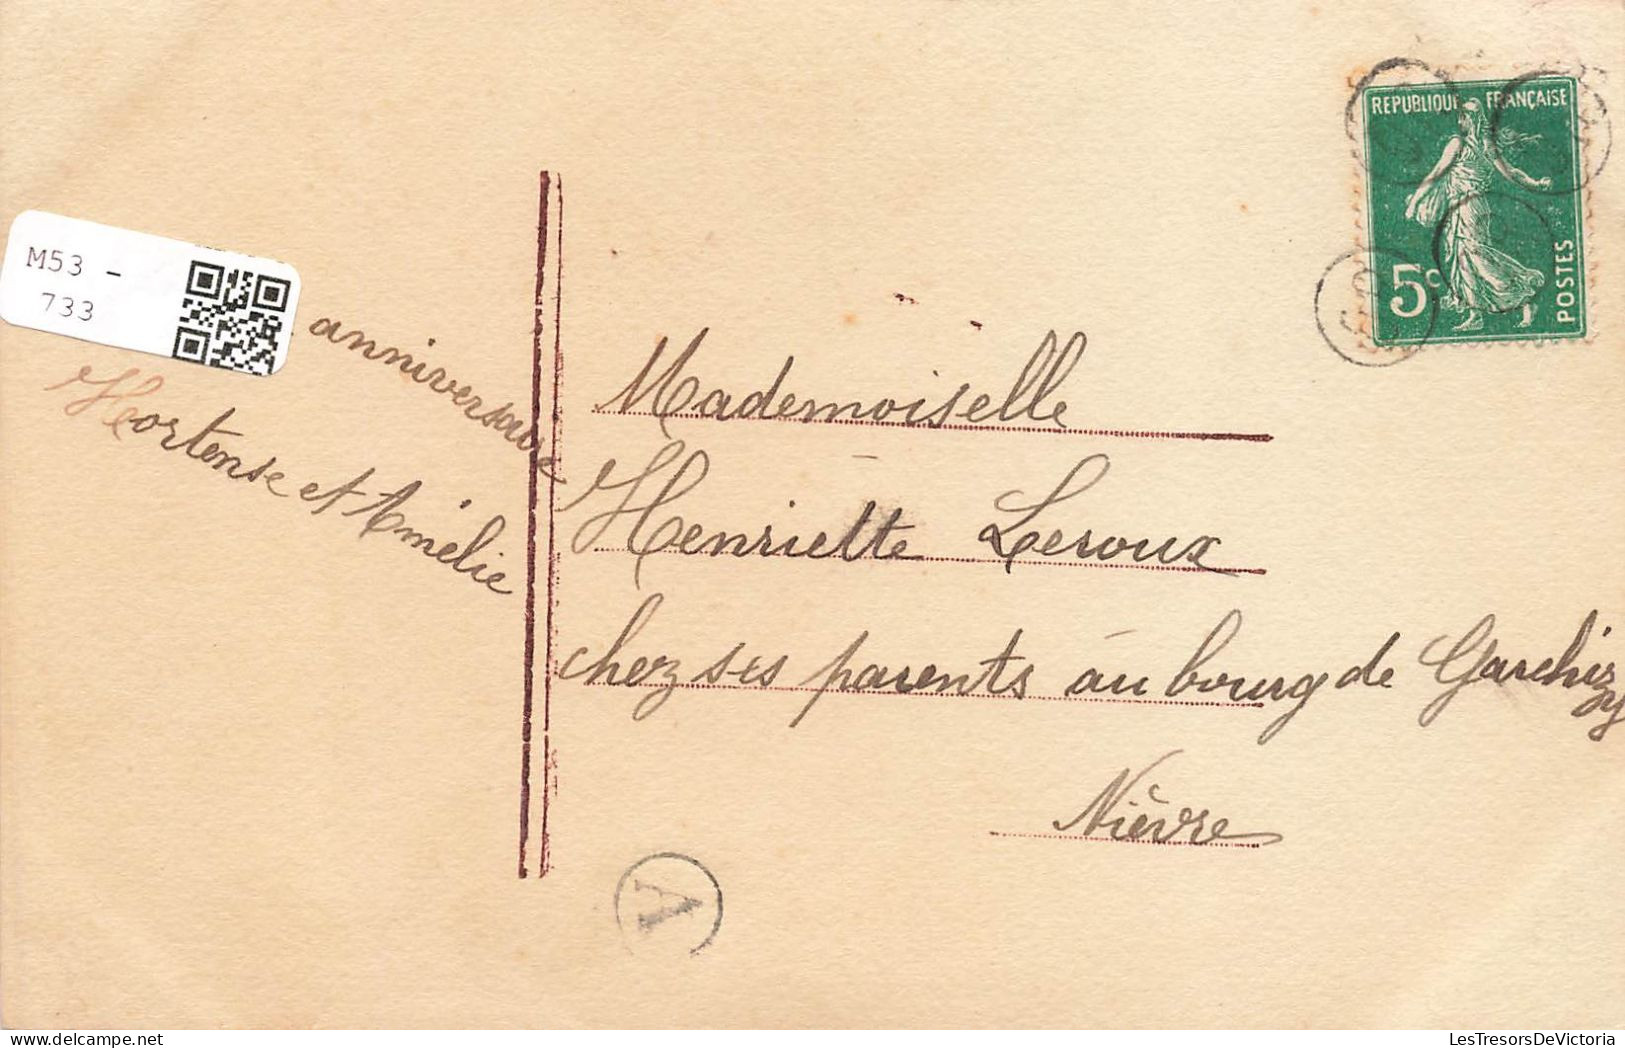 M53 -
733
anniversaire
Hortense et Amélie
REPUBLIQUE FRANÇAISE
5c
POSTES
Mademoiselle
Henriette Leroux
chez ses parents au bourg de Garchizy
Nièvre
A
LesTresorsDeVictoria